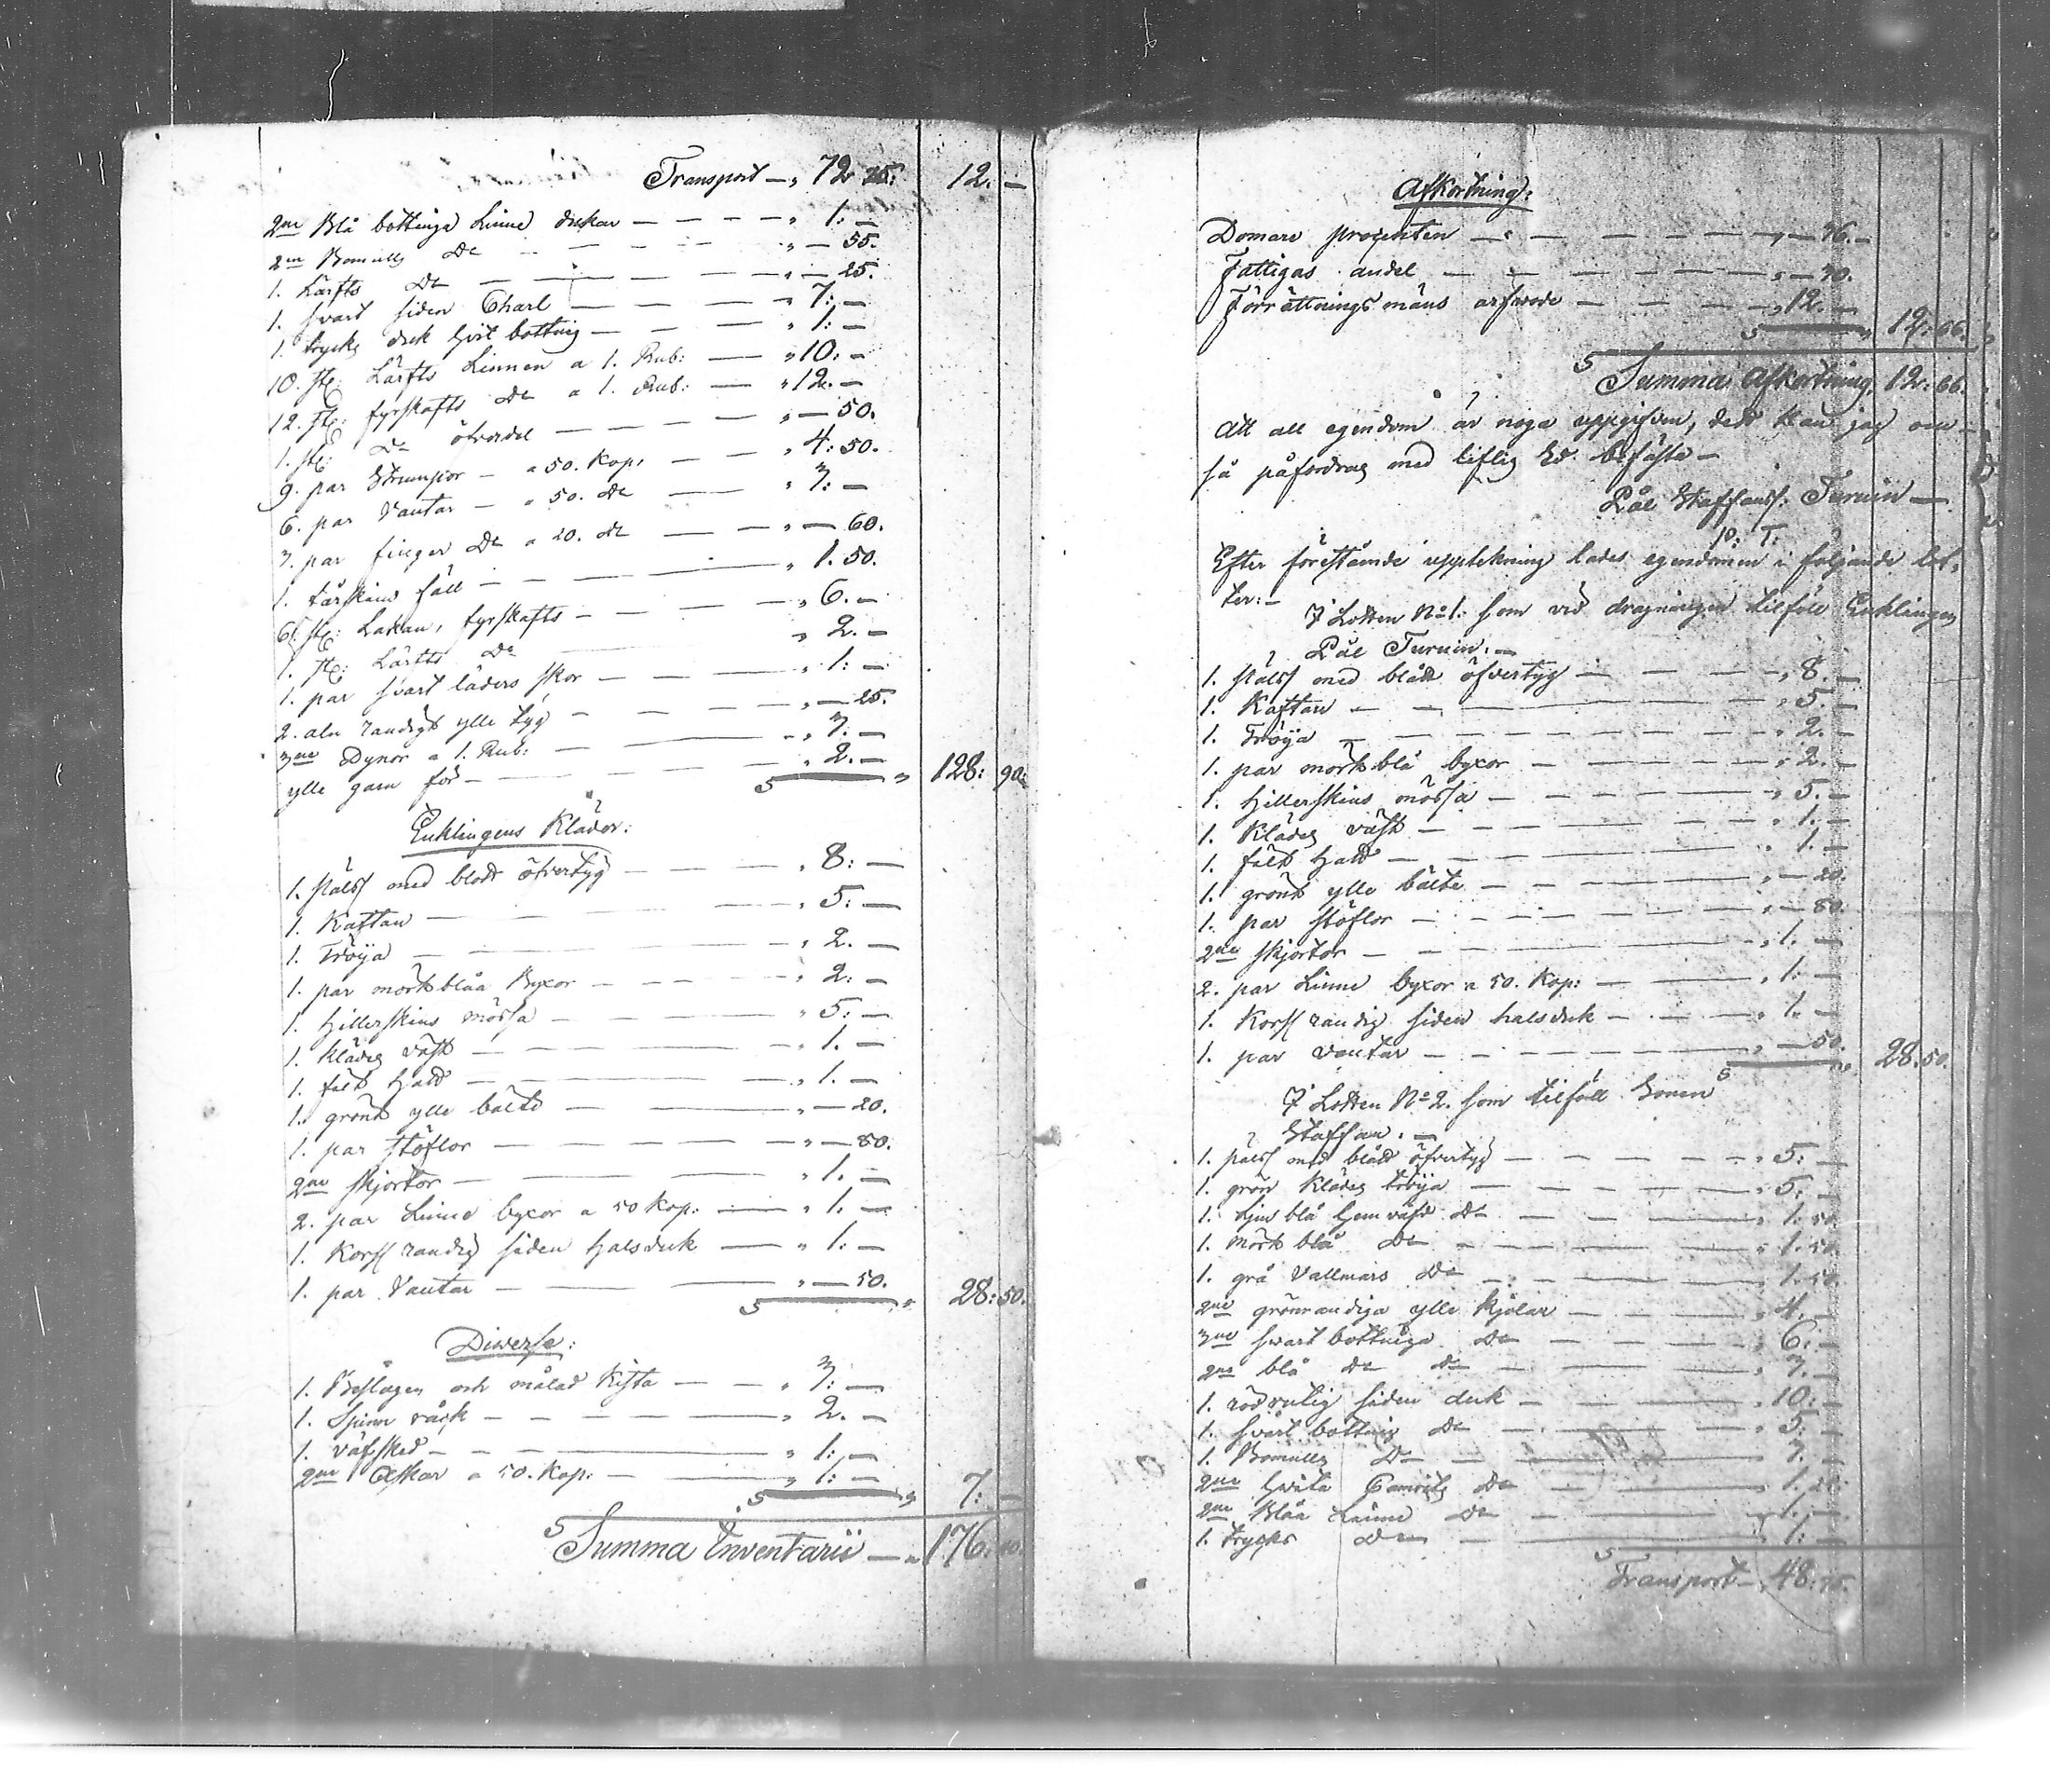 Transport — „ 72 25. 12. —
2ne Blå bottniga Linne dukar — — — — „ 1: —
2ne Bomulls De — — — — „ — 55.
1. Lärfts De — — — — „ — 25.
1. svart siden Charl — — — — „ 7: —
1. tryckt duk hvit bottnig — — — „ 1: —
10. st: Lärfts Linnen a 1. Rub: — „ 10: —
12. st: fyrskafts De a 1. Rub: — „ 12. —
1. st: De öfverdel — — — — „ — 50.
9. par Strumpor — a 50. Kop: — — „ 4: 50.
6. par Vantar — a 50. De — „ 3: —
3. par finger De a 20. De — — „ — 60.
1. fårskins fäll — — — „ 1. 50.
6. st: Lakan, fyrskafts — — — „ 6. —
1. st: Lärfts De — — „ 2. —
1. par svart läders skor — — — „ 1: —
2. aln randigt ylle tyg — — — — „ — 25.
3ne Dynor a 1. Rub: — — — „ 3. —
ylle garn för — — — — „ 2. — 128: 90.
Enklingens Kläder:
1. Päls med blått öfvertyg — — — — „ 8: —
1. Kaftan — — — — „ 5: —
1. Tröija — — — „ 2. —
1. par mörkblåa Byxor — — — — „ 2: —
1. Hillerskins mössa — — — — „ 5: —
1. Klädes väst — — — — „ 1. —
1. filt Hatt — — — — „ 1. —
1. grönt ylle bälte — — — „ — 20.
1. par stöflor — — — — „ — 80.
2ne skjortor — — — „ 1. —
2. par Linne byxor a 50 Kop: — „ 1. —
1. Kors randig siden halsduk — „ 1: —
1. par Vantar — — — „ — 50. 28: 50.
Diverse:
1. Beslagen och målad Kista — — „ 3: —
1. Spinn råck — — — — „ 2. —
1. väfsked — — — — „ 1: —
2ne Askar a 50. Kop: — — „ 1: — 7: —
Summa Inventarii — „ 176: 40.
Afkortning:
Domare procenten — — — — — „ — 36. —
Fattigas andel — — — — — „ — 30.
Förrättningsmäns arfvode — — — „ 12. — 12: 66.
Summa Afkortning, 12: 66.
Att all egendom är noga uppgifven, dett kan jag om
så påfordras med liflig Ed. befästa —
Pål Staffanss. Turuin —
P. T.
Efter förestående upptekning lades egendomen i följande lot-
ter: —
I Lotten No 1: som vid dragningen tilföll Enklingen
Pål Turuin. —
1. päls med blått öfvertyg — — — — „ 8. —
1. Kaftan — — — — „ 5. —
1. Tröija — — — — — „ 2. —
1. par mörkblå byxor — — — — „ 2. —
1. Hillerskins mössa — — — — „ 5. —
1. Klädes väst — — — — „ 1. —
1. filt Hatt — — — — „ 1. —
1. grönt ylle bälte — — — — „ — 20.
1. par stöflor — — — — „ — 80.
2ne skjortor — — — — „ 1. —
2. par Linne byxor a 50. Kop: — — „ 1: —
1. Kors randig siden halsduk — — — „ 1. —
1. par vantar — — — — „ — 50. 28: 50.
I Lotten No 2. som tilföll Sonen
Staffan. —
1. päls med blått öfvertyg — — — — „ 5: —
1. grön Klädes tröija — — — — „ 5: —
1. Ljus blå hemväfd De — — — „ 1. 50.
1. Mörk blå De — — — — „ 1. 50.
1. grå Vallmars De — — — „ 1. 50.
2ne grönrandiga ylle kjolar — — — „ 4. —
3ne svart bottniga De — — — „ 6: —
2ne blå De De — — — „ 3. —
1. rödrutig siden duk — — — — „ 10: —
1. svart bottnig De — — — „ 5: —
1. Bomulls De — — — 3. —
2ne hvita De — — 1.
2ne Blåa Linne De — — 1. —
1. tryckt De — — 1: —
Transport — „ 48: